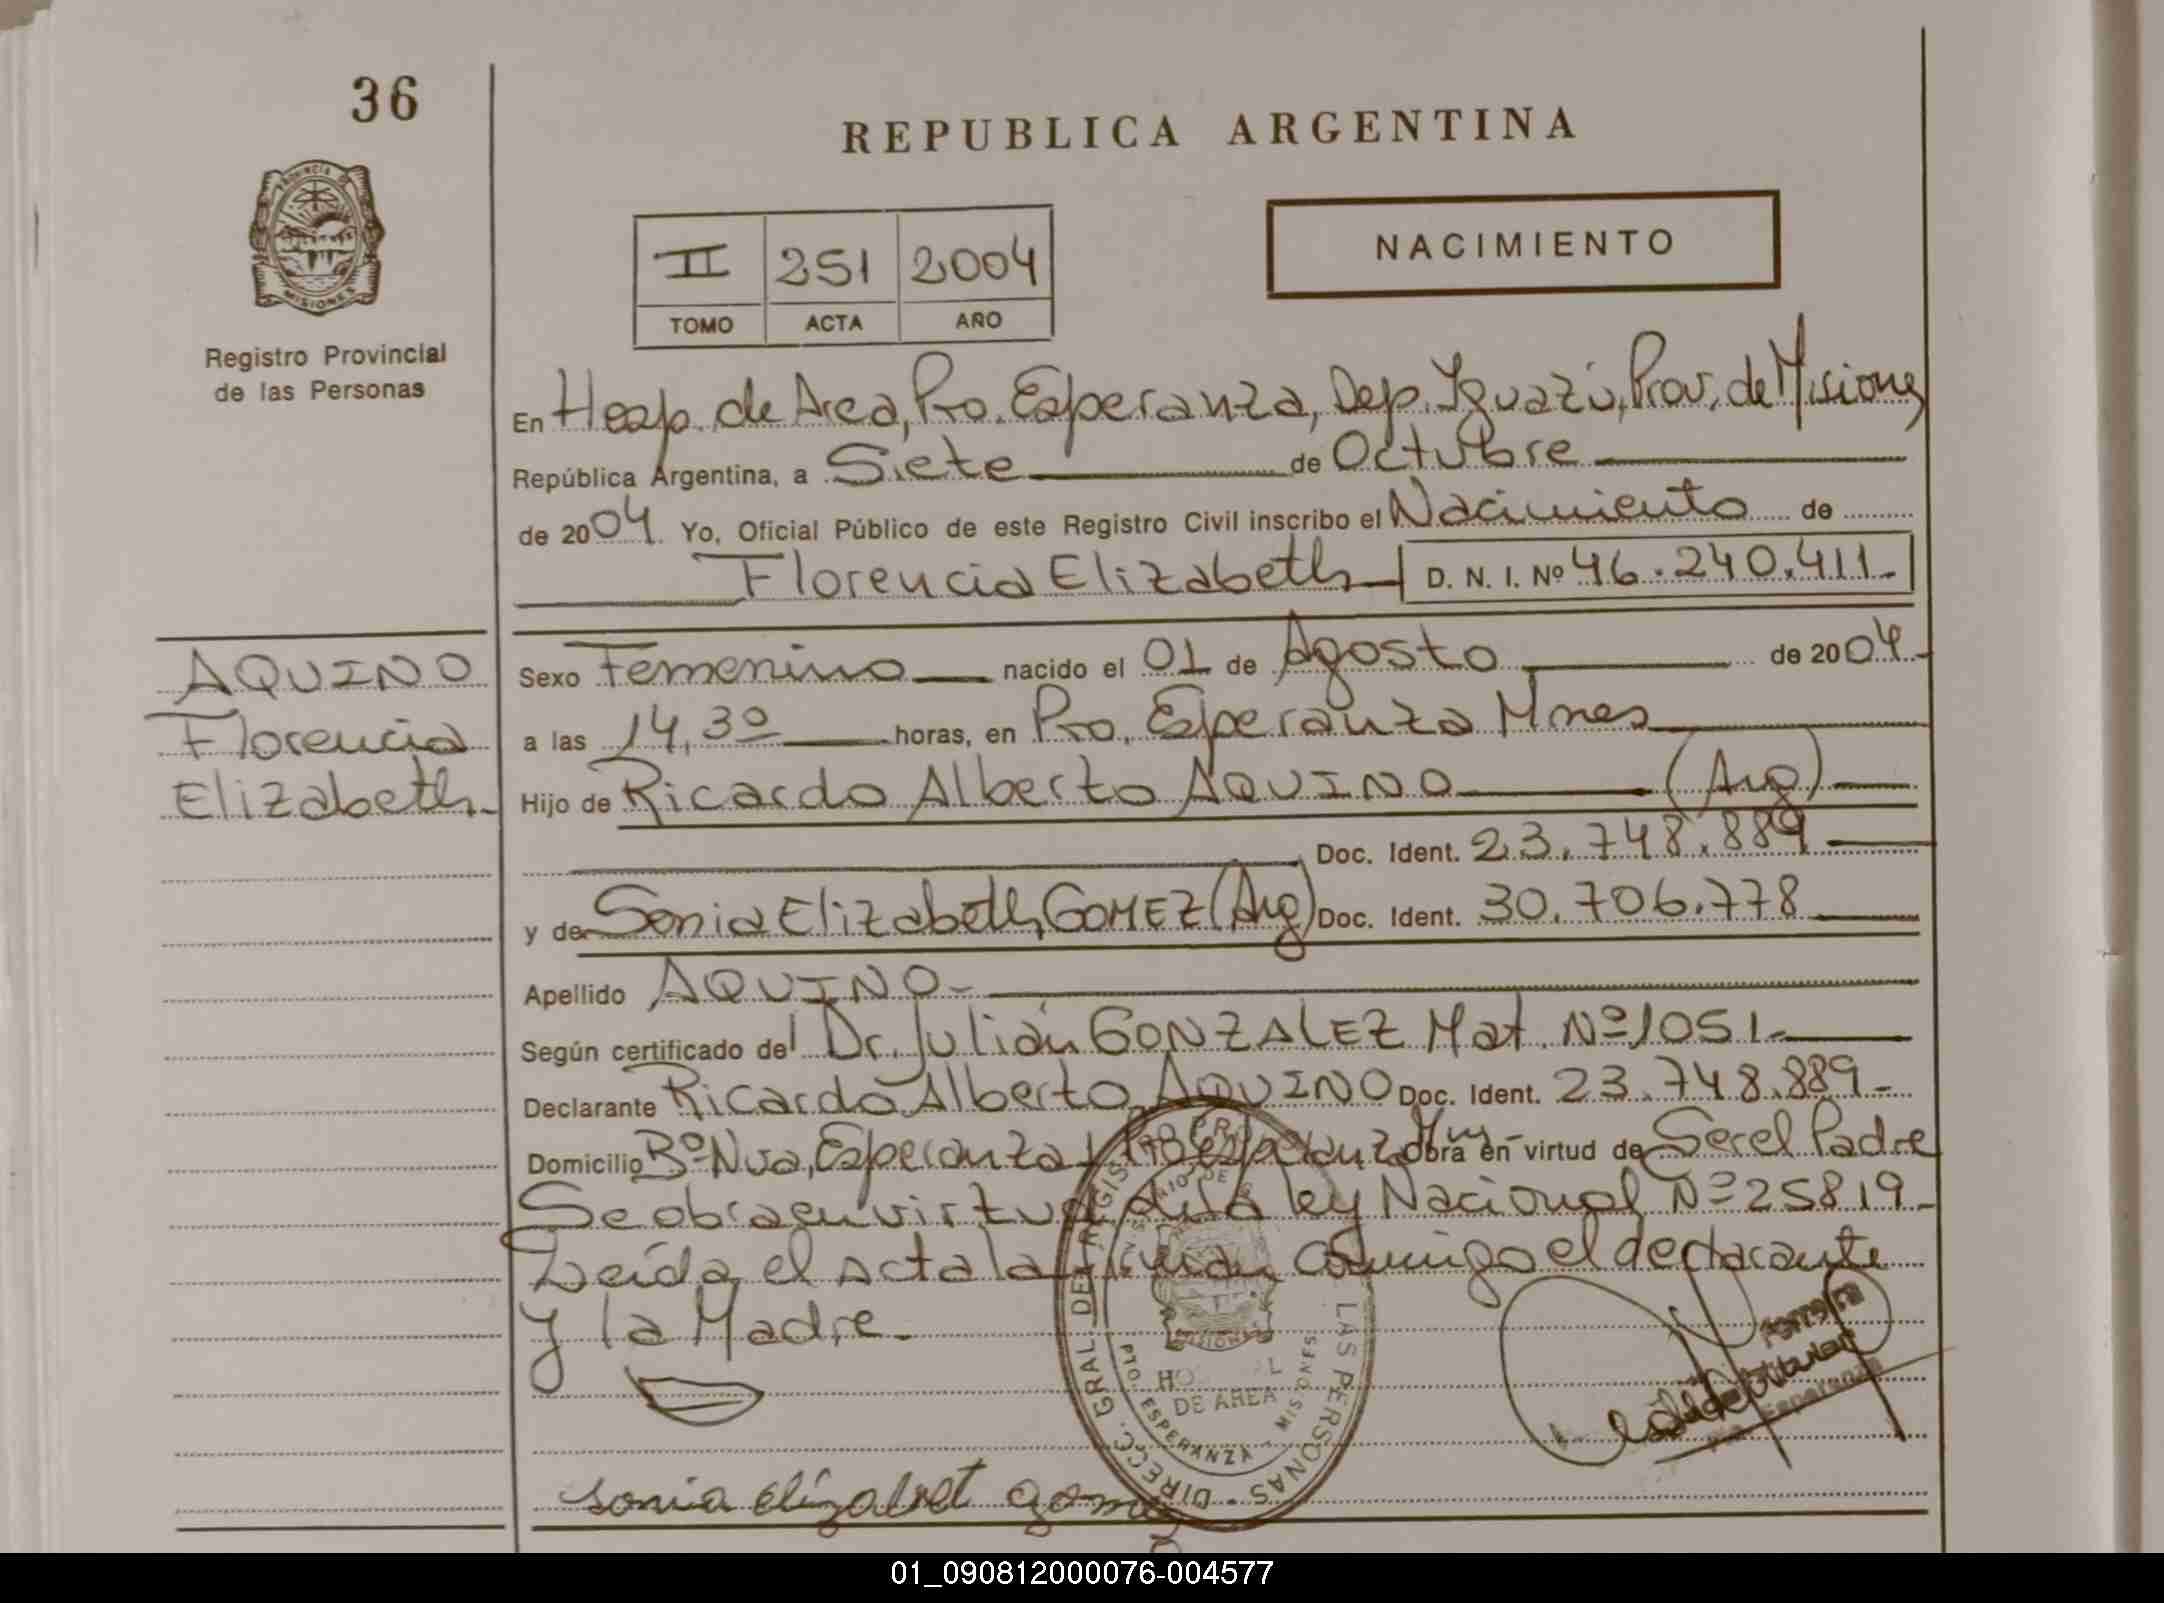 36
REPUBLICA ARGENTINA
PROVINCIA DE
MISIONES
Registro Provincial
de las Personas
II 251 2004
TOMO ACTA AÑO
NACIMIENTO
En Hosp. de Area, Pto. Esperanza, Dep. Iguazú, Prov. de Misiones
República Argentina, a Siete de Octubre
de 2004 Yo, Oficial Público de este Registro Civil inscribo el Nacimiento de
Florencia Elizabeth D. N. I. Nº 46.240.411.-
AQUINO
Florencia
Elizabeth.-
Sexo Femenino nacido el 01 de Agosto de 2004.-
a las 14,30 horas, en Pto. Esperanza Mnes
Hijo de Ricardo Alberto AQUINO (Arg)
Doc. Ident. 23.748.889
y de Sonia Elizabeth GOMEZ (Arg) Doc. Ident. 30.706.778
Apellido AQUINO.-
Según certificado del Dr. Julián GONZALEZ Mat. Nº 1051.-
Declarante Ricardo Alberto AQUINO Doc. Ident. 23.748.889.-
Domicilio Bº Nva, Esperanza Pto Esperanza Mns- Obra en virtud de Ser el Padre
Se obra en virtud de la Ley Nacional Nº 25819.-
Leída el acta la firman conmigo el declarante
y la Madre.-
DIRECC. GRAL DEL REGISTRO LAS PERSONAS
MISIONES
DE AREA
PTO. ESPERANZA - MISIONES
sonia elizabet gomez
01_090812000076-004577